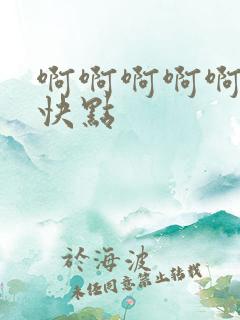 啊啊啊啊啊
快點
於海波
未经同意禁止转载